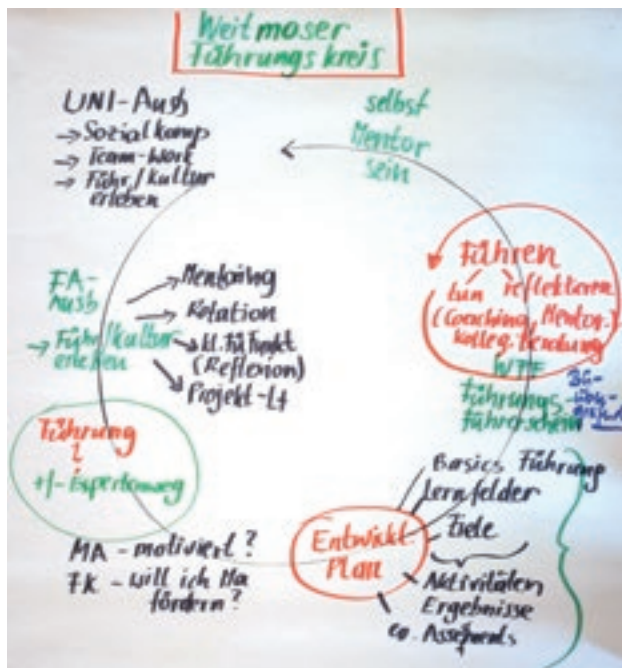 Weitmoser
Führungskreis
UNI-Ausb
→ Sozialkomp
→ Team-Work
→ Führ/Kultur
erleben
selbst
Mentor
sein
FA-
Ausb
→ Führ/Kultur
erleben
→ Mentoring
→ Rotation
→ kl. Fü Funkt
(Reflexion)
→ Projekt-Lt
Führen
tun reflektieren
(Coaching, Mentor.,
Kolleg. Beratung)
Führungs-
führerschein
Führung
+/- Expertenweg
MA - motiviert?
FK - will ich Ma
fördern?
Entwickl.
Plan
Basics Führung
Lernfelder
Ziele
Aktivitäten
Ergebnisse